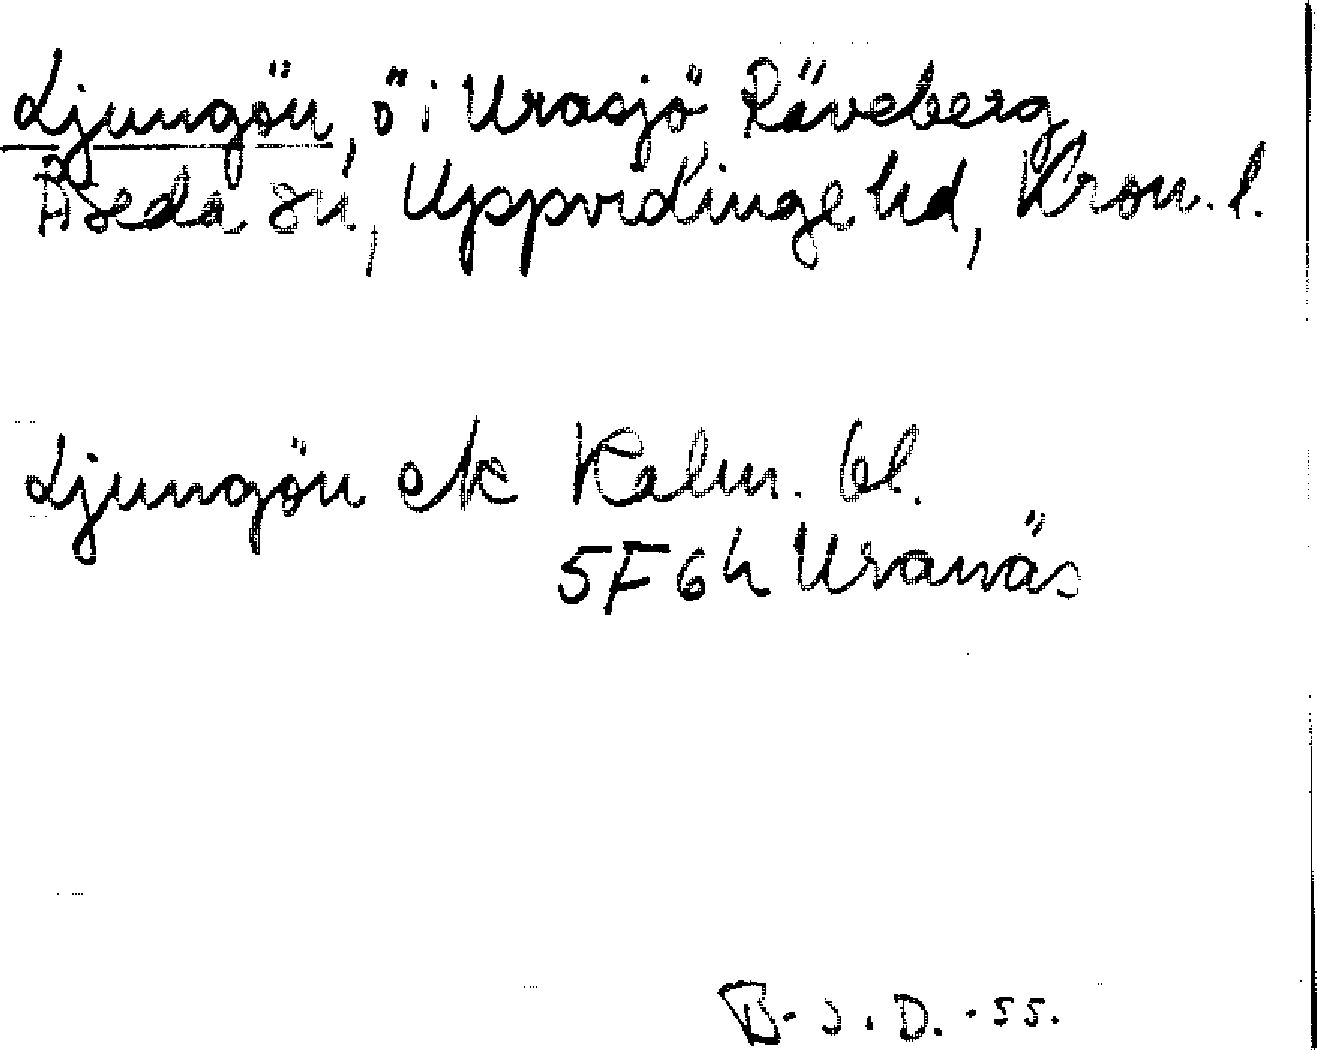 Ljungön, ö i Urasjö Räveberg
Åseda sn, Uppvidinge hd, Kron. l.
Ljungön ek Kalm. bl.
5F6h Uranäs
B. J. D. -55.